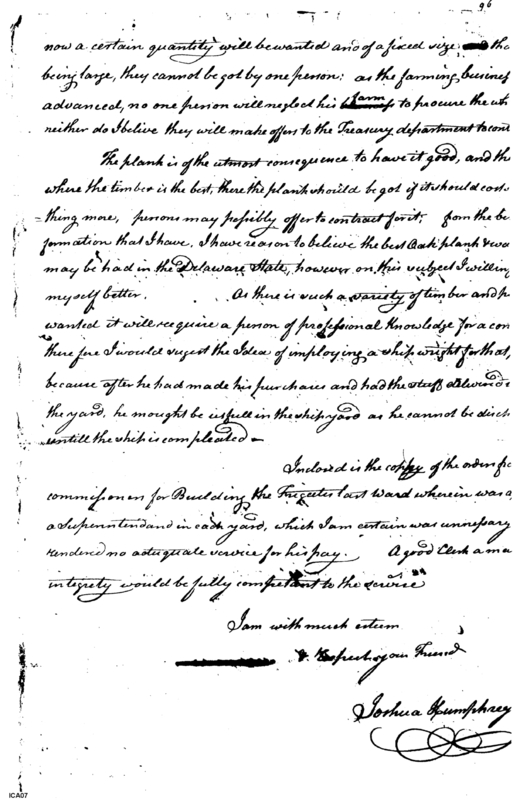 96
now a certain quantity will be wanted and of a fixed size the
being large, they cannot be got by one person: as the farming busines
advanced, no one person will neglect his farm to procure the
neither do I belive they will make offers to the Treasury department to cont
The plank is of the utmost consequence to have it good, and th
where the timber is the best, there the plank should be got if it should cost
thing more, persons may possibly offer to contract for it; from the be
formation that I have, I have reason to believe the best Oak plank
may be had in the Delaware State, however on this subject I will in
myself better. As there is such a variety of timber and p
wanted it will require a person of professional Knowledge for a con
there fore I would sugest the Idea of imploying a ship wright for that,
because after he had made his purchases and had the stuff delivered
the yard, he mought be usfull in the ship yard as he cannot be disch
untill the ship is compleated
Inclosed is the coppy of the orders fro
commissoners for Building the Frigates last Ward wherein was a
a Superintendand in each yard, which I am certain was unnessary
rendered no adequate service for his pay. A good Clerk a ma
integrety would be fully competant to the service
I am with much esteem
& Respect your Friend
Joshua Humphrey
ICA07